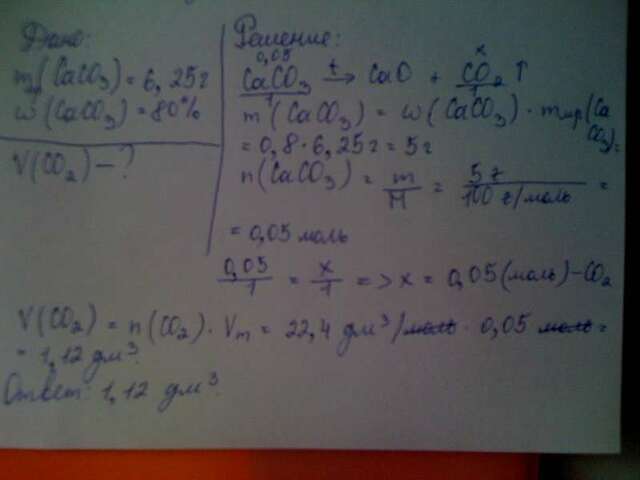 Дано:
m пр(CaCO3) = 6,25г
w(CaCO3) = 80%
V(CO2) – ?
Решение:
0,05 x
CaCO3 t→ CaO + CO2 ↑
1 1
m(CaCO3) = w(CaCO3) · m пр(Ca
CO3) =
= 0,8 · 6,25г = 5г
n(CaCO3) = m/M = 5г/100 г/моль =
= 0,05 моль
0,05/1 = x/1 => x = 0,05(моль) – CO2
V(CO2) = n(CO2) · Vm = 22,4 дм³/моль · 0,05 моль =
= 1,12 дм³.
Ответ: 1,12 дм³.